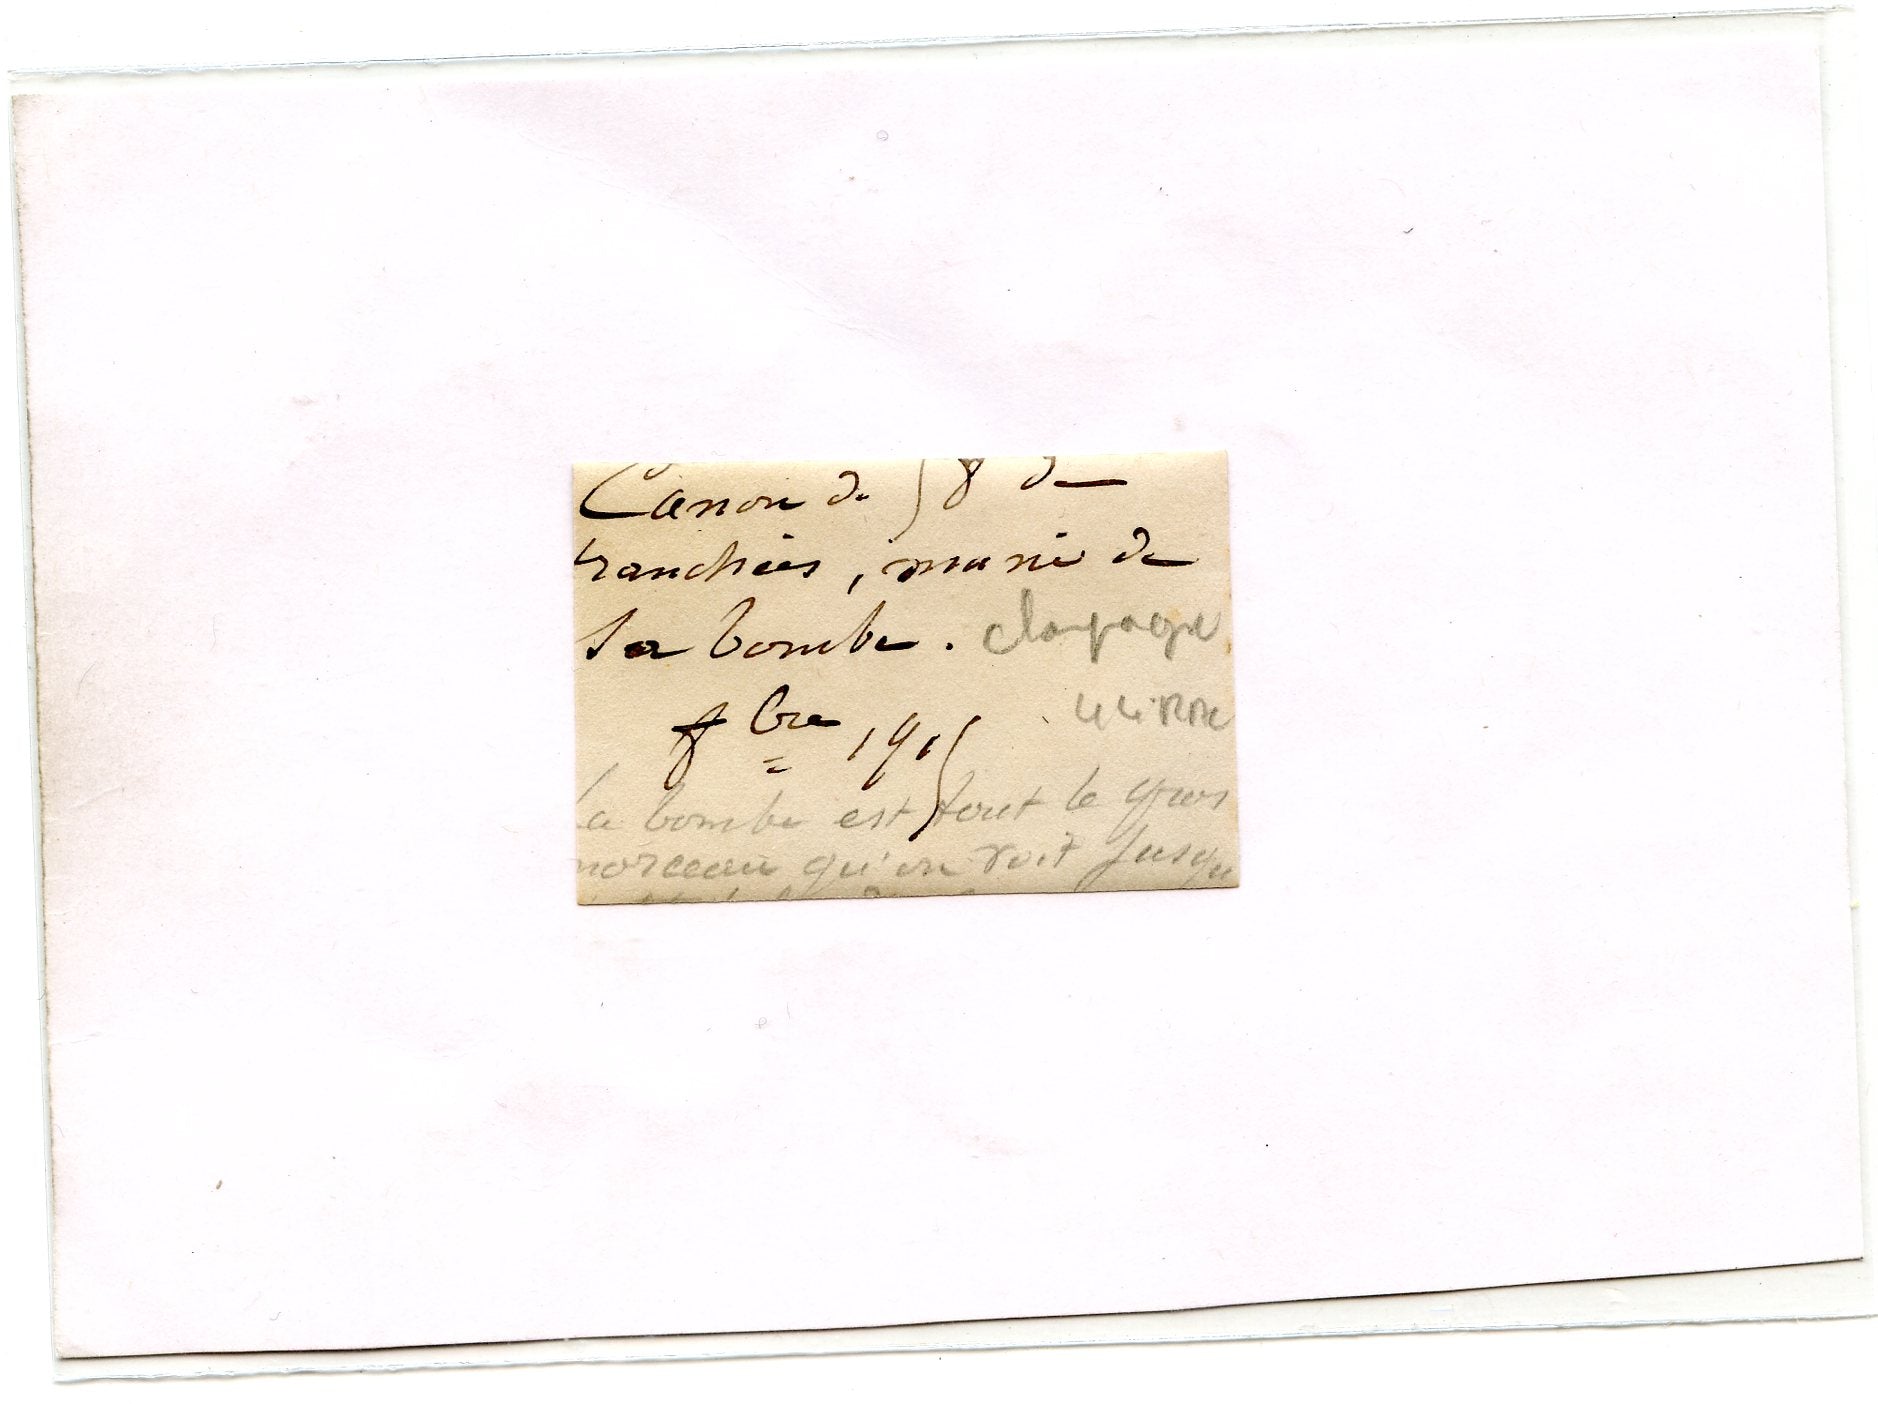 Canon de 58 de
tranchées, muni de
sa bombe. Champagne
8bre 1915
La bombe est tout le gros
morceau qu'on voit jusqu